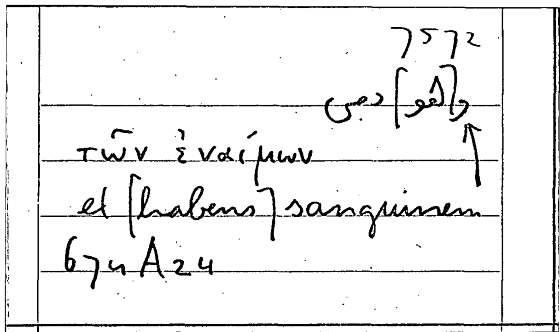 7572
و[هو] دمى
τῶν ἐναίμων
et [habens] sanguinem
674 A 24